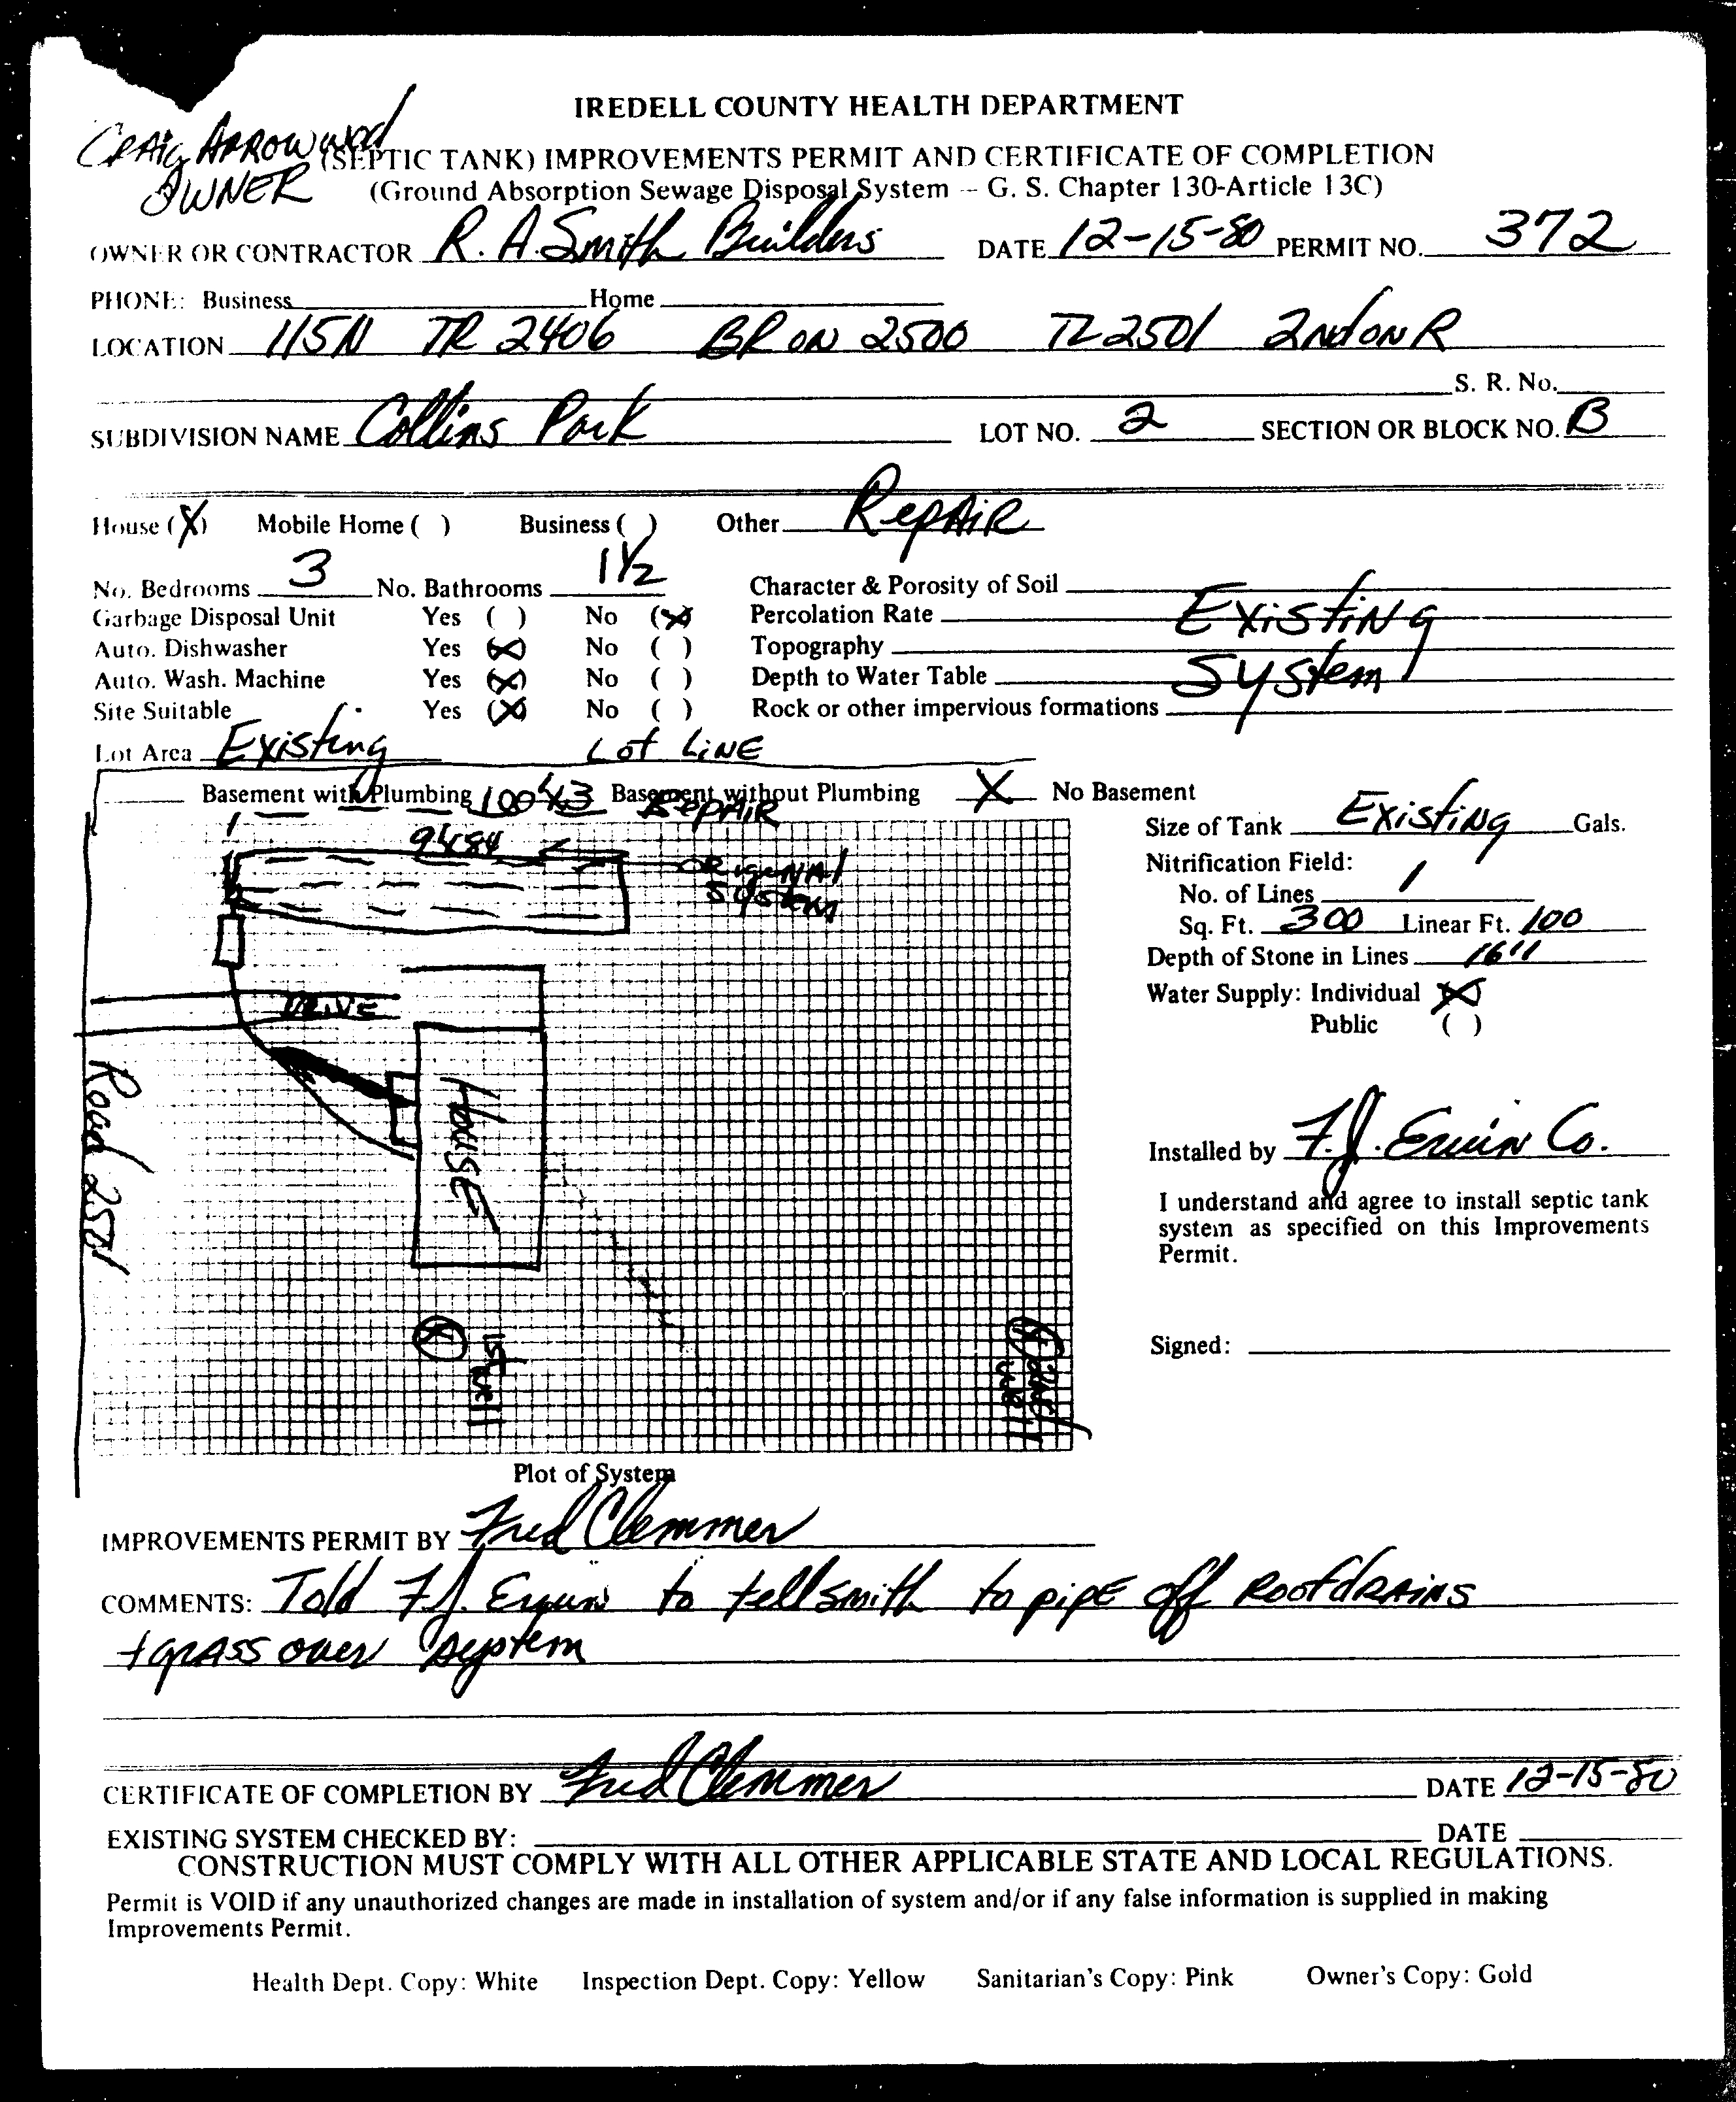 IREDELL COUNTY HEALTH DEPARTMENT
CRAIG ARROWWOOD
(SEPTIC TANK) IMPROVEMENTS PERMIT AND CERTIFICATE OF COMPLETION
OWNER
(Ground Absorption Sewage Disposal System -- G. S. Chapter 130-Article 13C)
OWNER OR CONTRACTOR R. A. Smith Builders DATE 12-15-80 PERMIT NO. 372
PHONE: Business Home
LOCATION 115N TR 2406 BR ON 2500 TL 2501 2nd ON R
S. R. No.
SUBDIVISION NAME Collins Park LOT NO. 2 SECTION OR BLOCK NO. B
House (X) Mobile Home ( ) Business ( ) Other Repair
No. Bedrooms 3 No. Bathrooms 1 1/2 Character & Porosity of Soil
Garbage Disposal Unit Yes ( ) No (X) Percolation Rate Existing
Auto. Dishwasher Yes (X) No ( ) Topography
Auto. Wash. Machine Yes (X) No ( ) Depth to Water Table System
Site Suitable Yes (X) No ( ) Rock or other impervious formations
Lot Area Existing Lot LINE
Basement with Plumbing Basement without Plumbing X No Basement
100x3 REPAIR
Size of Tank Existing Gals.
ORIGINAl
SYSTEM
Nitrification Field:
No. of Lines 1
Sq. Ft. 300 Linear Ft. 100
Depth of Stone in Lines 16"
Water Supply: Individual (X)
Public ( )
DRIVE
House
Road 2501
1st well
Installed by F.J. Erwin Co.
I understand and agree to install septic tank
system as specified on this Improvements
Permit.
Signed:
Plot of System
IMPROVEMENTS PERMIT BY Fred Clemmer
COMMENTS: Told F.J. Erwin to tell Smith to pipe off Roof drains
+ grass over system
CERTIFICATE OF COMPLETION BY Fred Clemmer DATE 12-15-80
EXISTING SYSTEM CHECKED BY: DATE
CONSTRUCTION MUST COMPLY WITH ALL OTHER APPLICABLE STATE AND LOCAL REGULATIONS.
Permit is VOID if any unauthorized changes are made in installation of system and/or if any false information is supplied in making
Improvements Permit.
Health Dept. Copy: White Inspection Dept. Copy: Yellow Sanitarian's Copy: Pink Owner's Copy: Gold